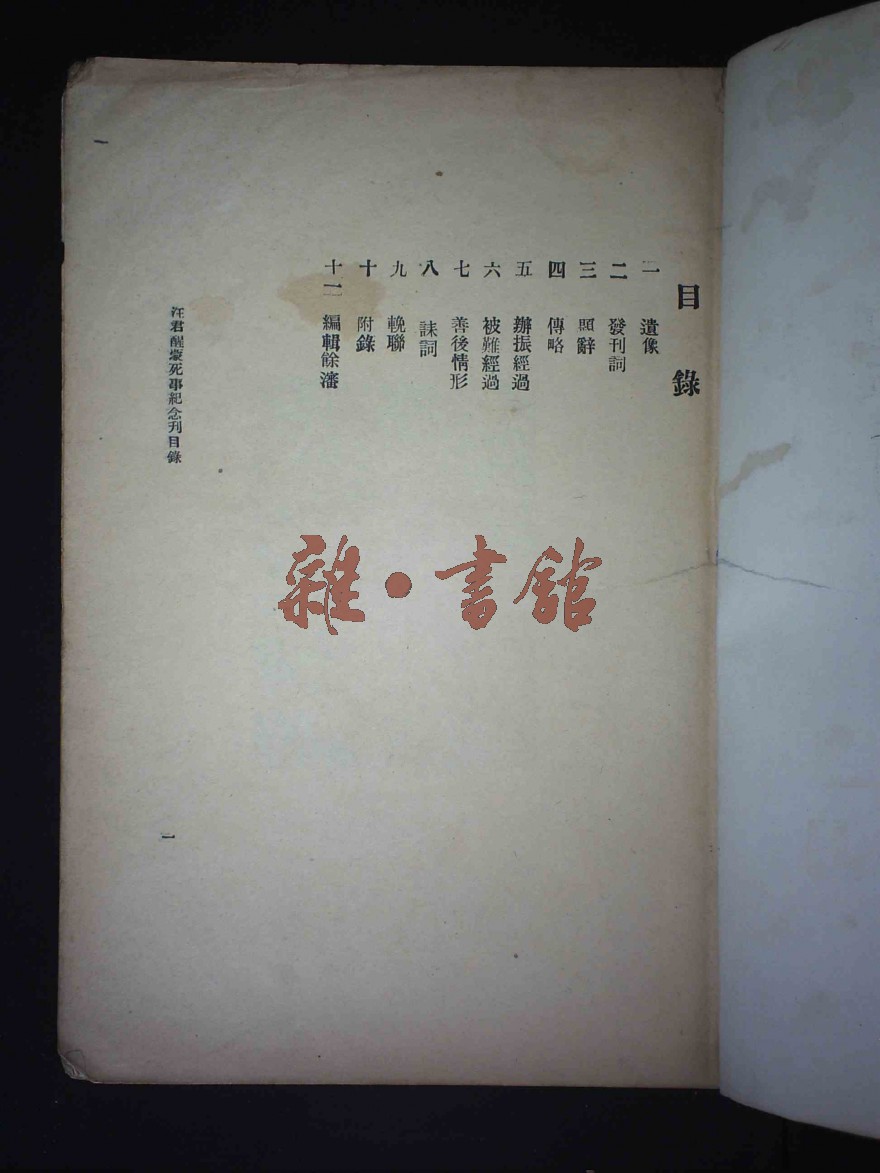 目錄
一 遺像
二 發刊詞
三 題辭
四 傳略
五 辦振經過
六 被難經過
七 善後情形
八 誄詞
九 輓聯
十 附錄
十一 編輯餘瀋
汪君醒蒙死事紀念刊目錄
一
雜·書館